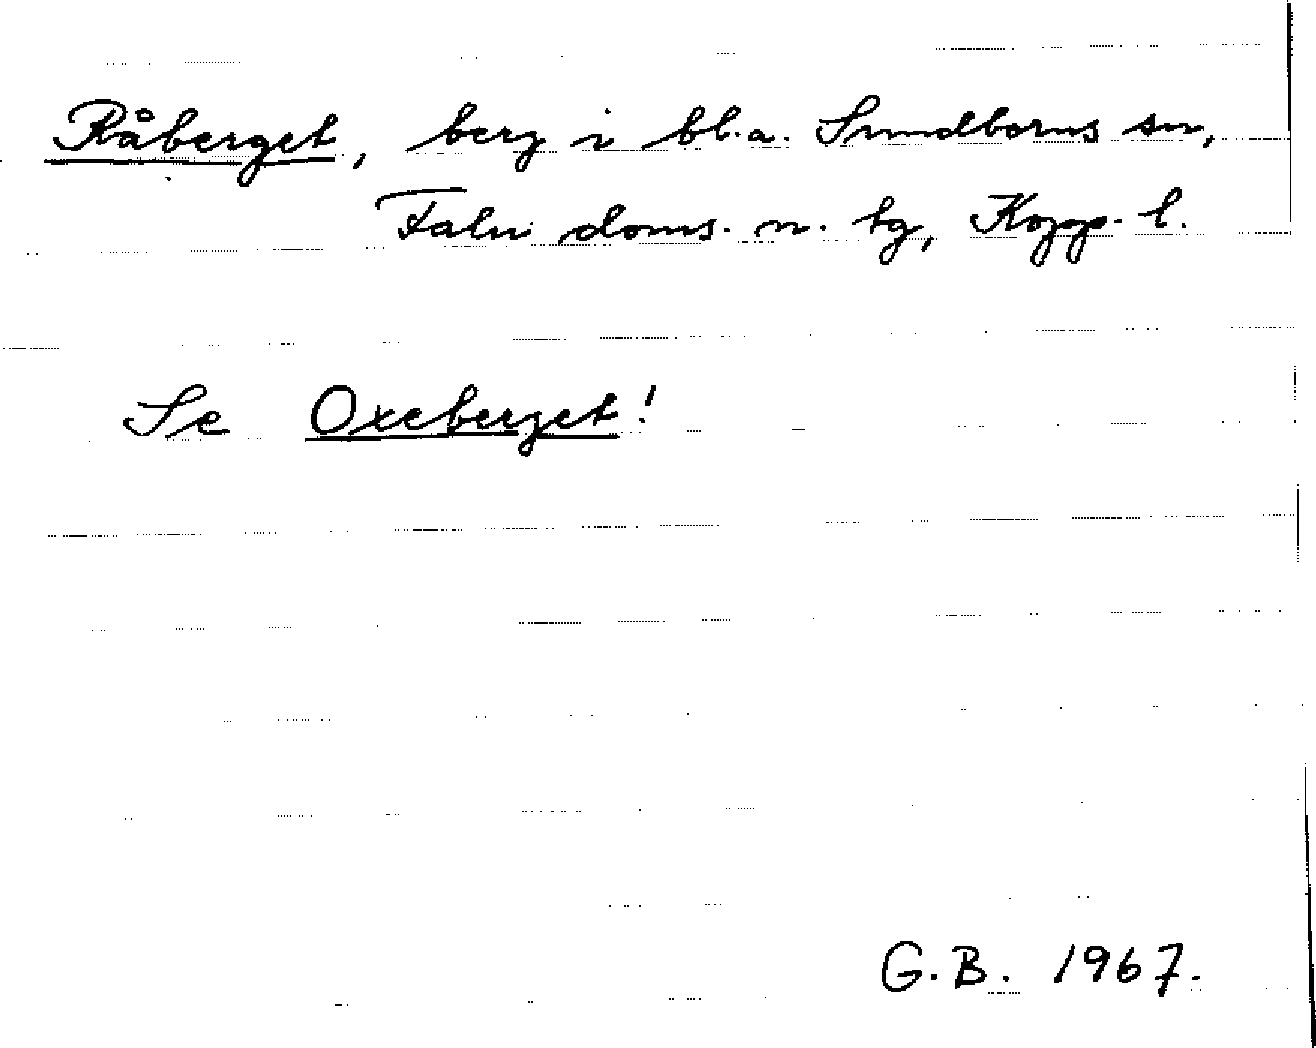 Råberget, berg i bl.a. Sundborns sn,
Falu doms. n. tg, Kopp. l.
Se Oxeberget!
G.B. 1967.